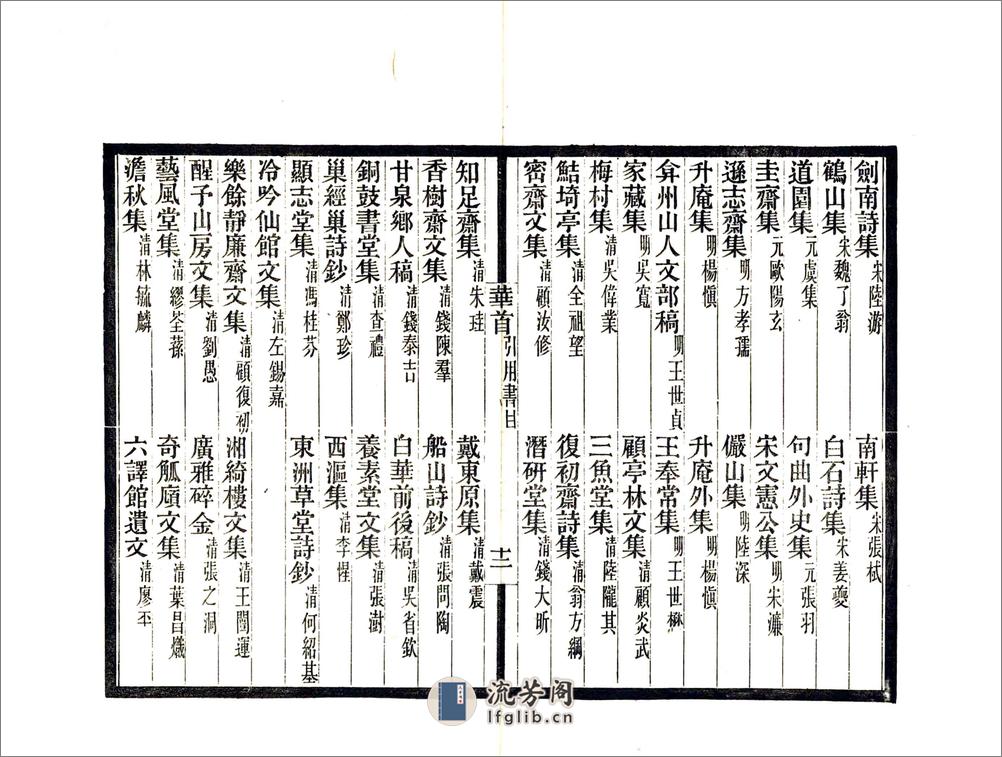 劍南詩集 宋陸游 南軒集 宋張栻
鶴山集 宋魏了翁 白石詩集 宋姜夔
道園集 元虞集 句曲外史集 元張羽
圭齋集 元歐陽玄 宋文憲公集 明宋濂
遜志齋集 明方孝孺 儼山集 明陸深
升庵集 明楊愼 升庵外集 明楊愼
弇州山人文部稿 明王世貞 王奉常集 明王世楙
家藏集 明吳寬 顧亭林文集 清顧炎武
梅村集 清吳偉業 三魚堂集 清陸隴其
鮚埼亭集 清全祖望 復初齋詩集 清翁方綱
密齋文集 清顧汝修 潛研堂集 清錢大昕
華首 引用書目 十二
知足齋集 清朱珪 戴東原集 清戴震
香樹齋文集 清錢陳羣 船山詩鈔 清張問陶
甘泉鄉人稿 清錢泰吉 白華前後稿 清吳省欽
銅鼓書堂集 清查禮 養素堂文集 清張澍
巢經巢詩鈔 清鄭珍 西漚集 清李惺
顯志堂集 清馮桂芬 東洲草堂詩鈔 清何紹基
冷吟仙館文集 清左錫嘉
樂餘靜廉齋文集 清顧復初 湘綺樓文集 清王闓運
醒予山房文集 清劉愚 廣雅碎金 清張之洞
藝風堂集 清繆荃蓀 奇觚廎文集 清葉昌熾
澹秋集 清林毓麟 六譯館遺文 清廖平
流芳阁
lfglib.cn